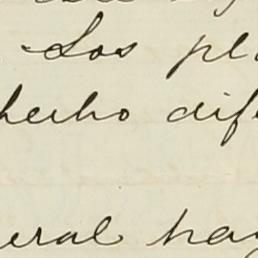 Los pl
hecho dif
eral hay